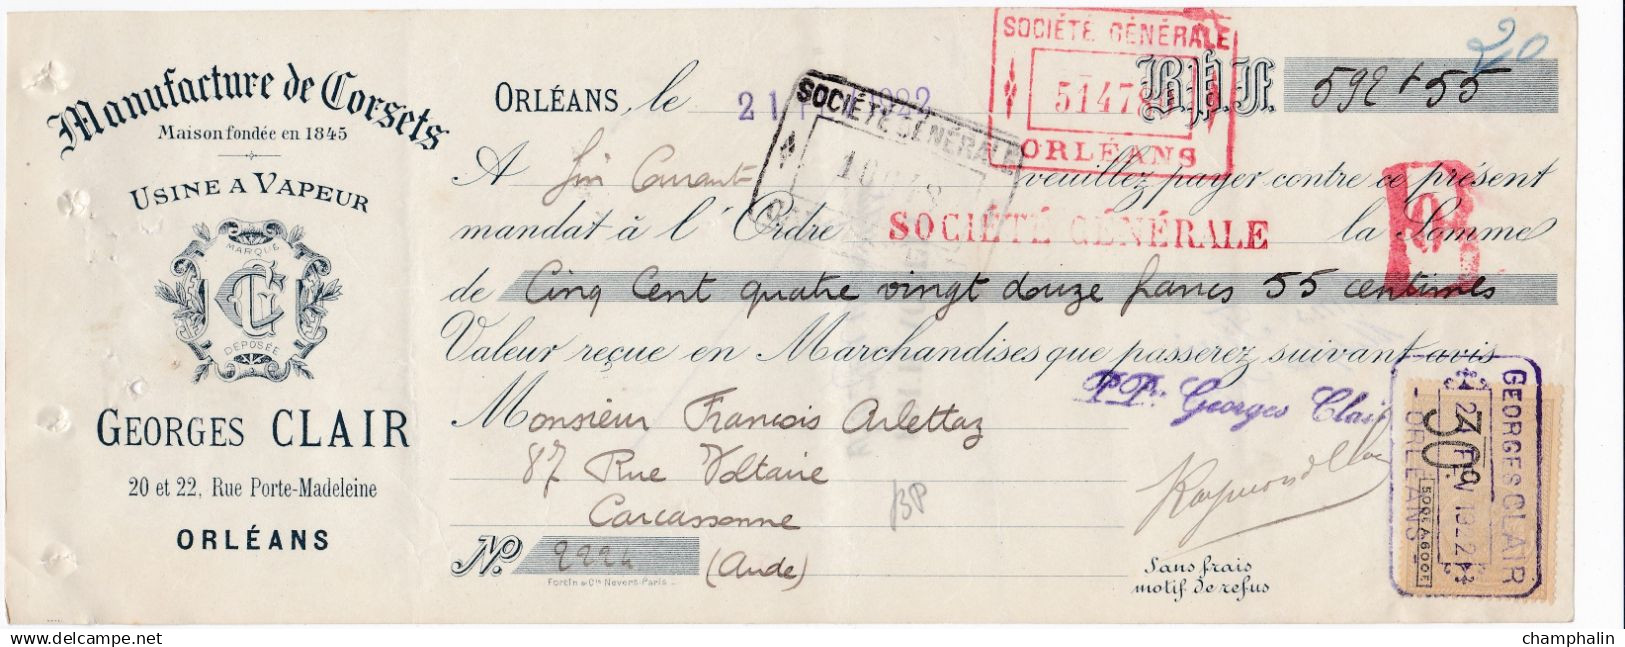 Manufacture de Corsets
Maison fondée en 1845
USINE A VAPEUR
MARQUE
DÉPOSÉE
GEORGES CLAIR
20 et 22, Rue Porte-Madeleine
ORLÉANS
SOCIÉTÉ GÉNÉRALE
ORLÉANS
20
ORLÉANS, le 21 1922
B.P.F. 592 + 55
SOCIÉTÉ GÉNÉRALE
A fin Courant veuillez payer contre ce présent
mandat à l'Ordre SOCIÉTÉ GÉNÉRALE la Somme
de Cinq Cent quatre vingt douze francs 55 centimes
Valeur reçue en Marchandises que passerez suivant avis
Monsieur François Arlettaz
87 Rue Voltaire
Carcassonne
(Aude)
BP
No. 2224
Fortin & Cie Nevers-Paris
PPn Georges Clair
Raymond Clair
Sans frais
motif de refus
GEORGES CLAIR
ORLÉANS
www.delcampe.net
champhalin